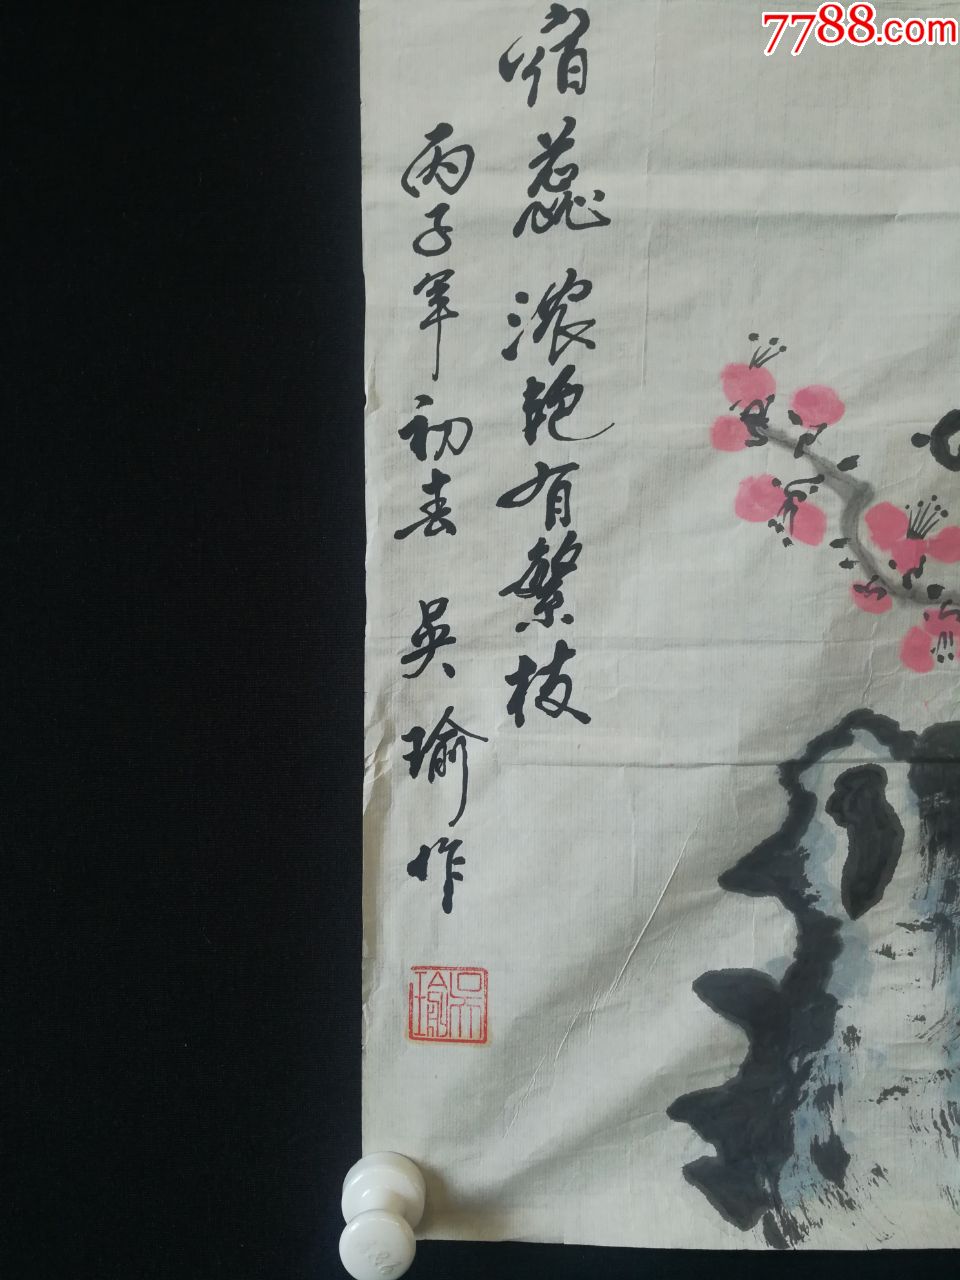 7788.com
宿蕊浓艳有繁枝
丙子年初春 吴瑜作
吴瑜